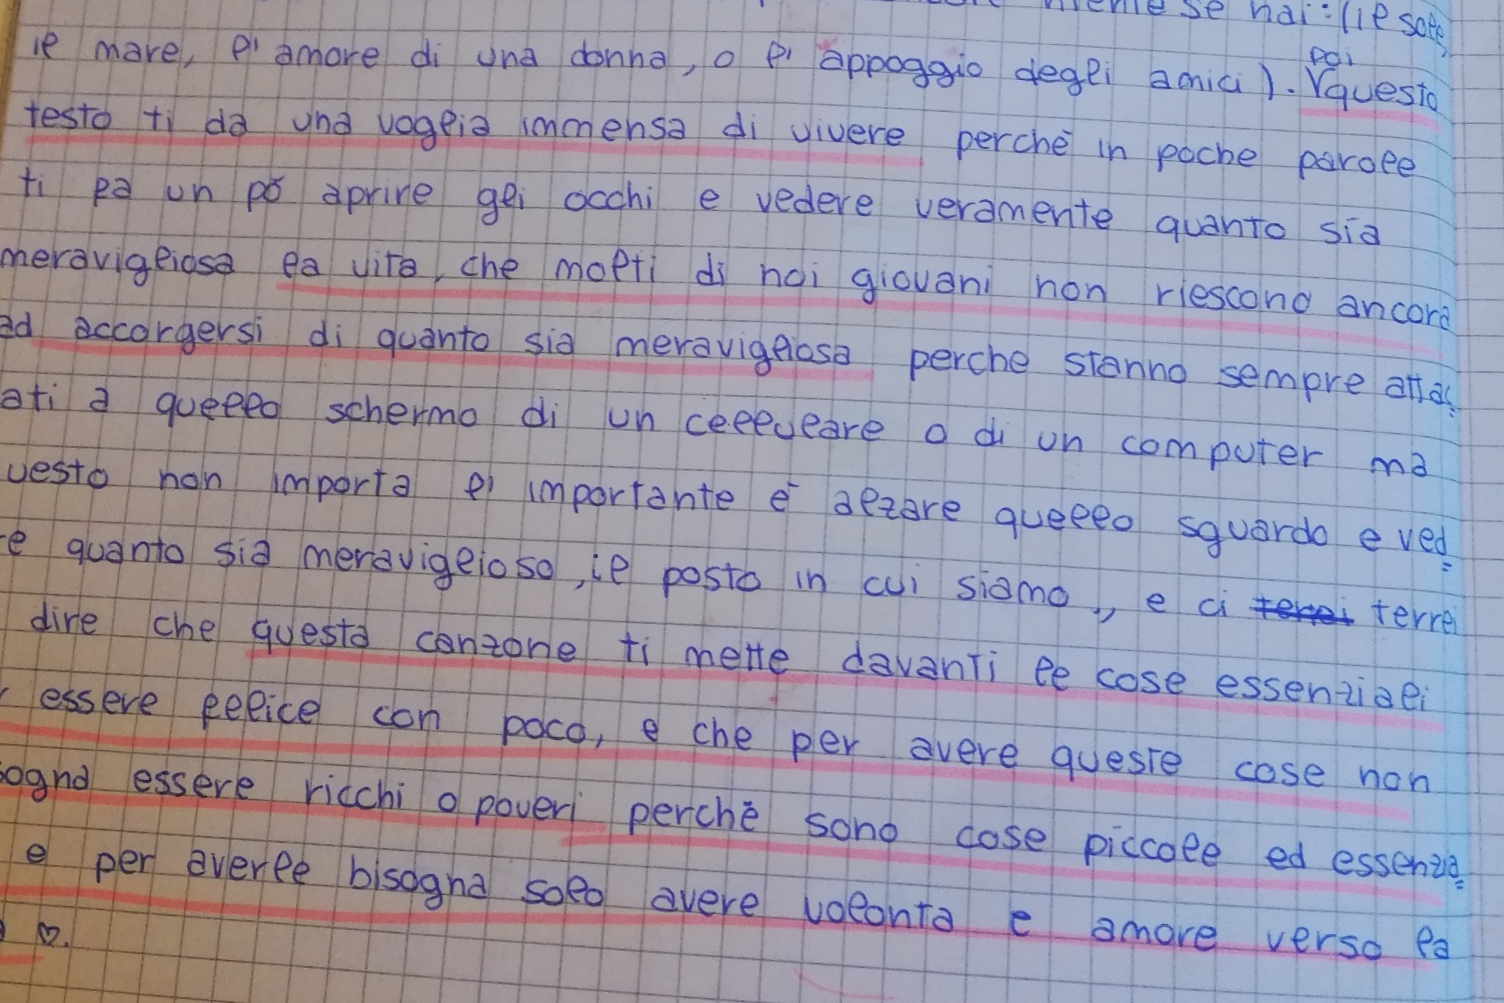 niente se hai: (il sole,
il mare, l'amore di una donna, o l'appoggio degli amici). poi questo
testo ti da una voglia immensa di vivere perchè in poche parole
ti fa un pò aprire gli occhi e vedere veramente quanto sia
meravigliosa la vita, che molti di noi giovani non riescono ancora
ad accorgersi di quanto sia meravigliosa perche stanno sempre attac
ati a quello schermo di un cellulare o di un computer ma
uesto non importa l'importante è alzare quello sguardo e ved
e quanto sia meraviglioso, il posto in cui siamo, e ci terrei
dire che questa canzone ti mette davanti le cose essenziali
essere felice con poco, e che per avere queste cose non
sogna essere ricchi o poveri perchè sono cose piccole ed essenzia
e per averle bisogna solo avere volonta e amore verso la
♡.